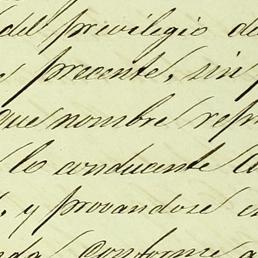 del privilegio de
precente, sin
que nombre rep
lo conducente a
y provandose en
conforme a